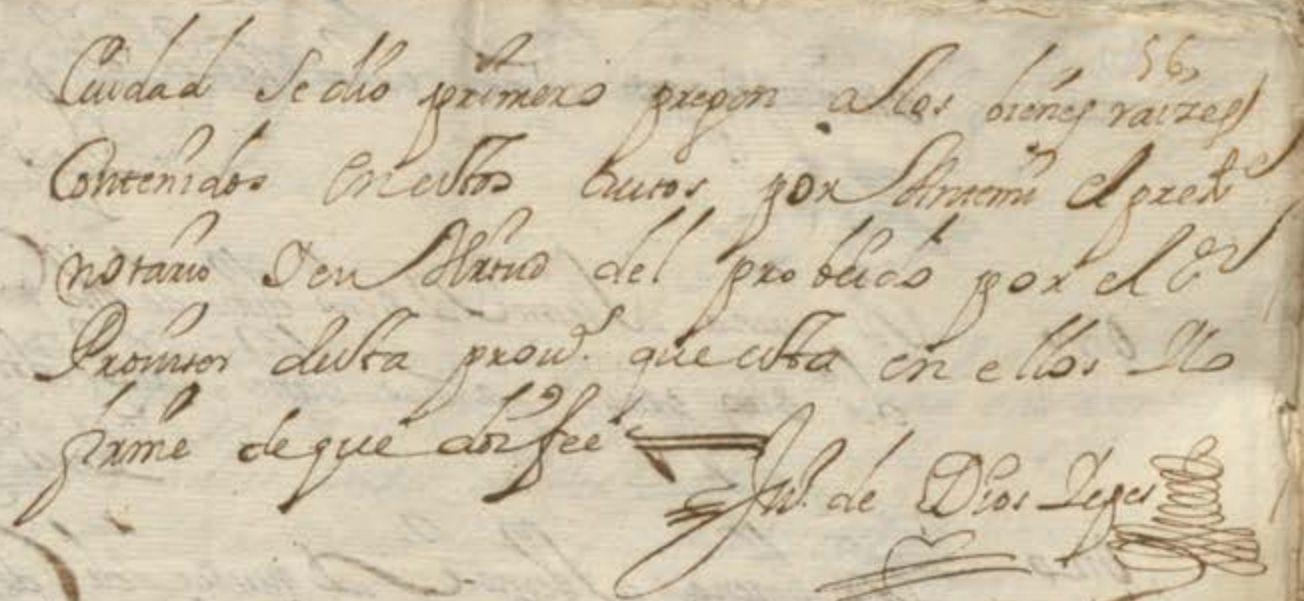 56
Ciudad Se dio primero pregon a los bienes raizes
Contenidos En estos Autos por Antemi el prest.e
notario I en Virtud del probeido por el S.r
Provisor desta prov.a que esta en ellos I lo
firme de que doi fee
Ju.o de Dios Yepes